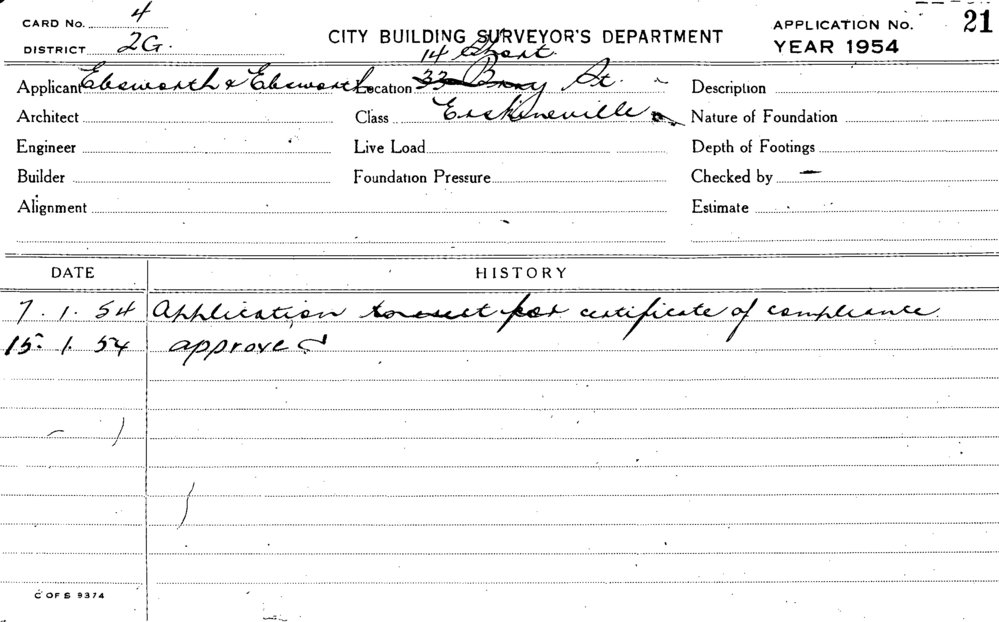 CARD No. 4
DISTRICT 2G.
CITY BUILDING SURVEYOR'S DEPARTMENT
APPLICATION No. 21
YEAR 1954
14 Short
Applicant Ebsworth & Ebsworth Location 33 Bray St. Description
Architect Class Erskineville Nature of Foundation
Engineer Live Load Depth of Footings
Builder Foundation Pressure Checked by
Alignment Estimate
DATE HISTORY
7. 1. 54 Application for certificate of compliance
15. 1. 54 approved
C OF S 9374